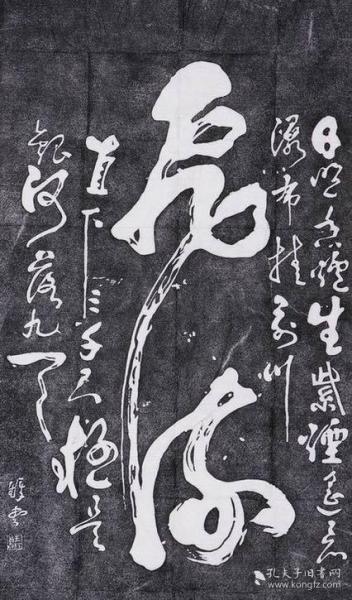 日照香爐生紫煙遙看
瀑布挂前川
飛流
直下三千尺疑是
銀河落九天
孔夫子旧书网
www.kongfz.com